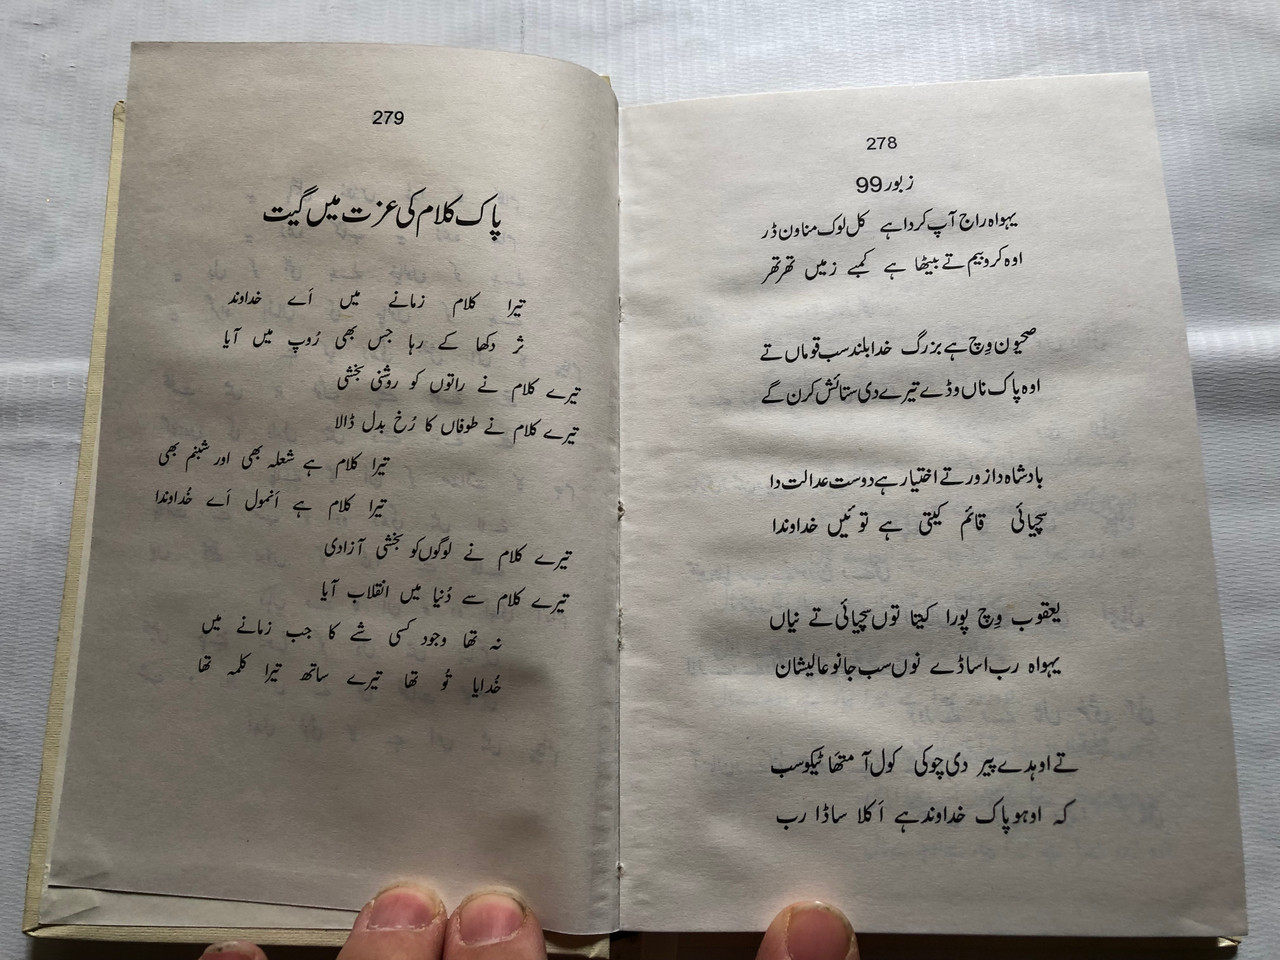 278
زبور 99
یہواہ راج آپ کردا ہے کل لوک مناون ڈر
اوہ کروبیم تے بیٹھا ہے کمبے زمیں تھر تھر
صحیون وِچ ہے بزرگ خدا بلند سب قوماں تے
اوہ پاک ناں وڈے تیرے دی ستائش کرن گے
بادشاہ دا زور تے اختیار ہے دوست عدالت دا
سچیائی قائم کیتی ہے تو ئیں خداوندا
یعقوب وِچ پورا کیتا توں سچیائی تے نیاں
یہواہ رب اساڈے نوں سب جانو عالیشان
تے اوہدے پیر دی چوکی کول آ متھا ٹیکو سب
کہ اوہو پاک خداوند ہے اَکلا ساڈا رب
279
پاک کلام کی عزت میں گیت
تیرا کلام زمانے میں اَے خداوند
ثر دکھا کے رہا جس بھی رُوپ میں آیا
تیرے کلام نے راتوں کو روشنی بخشی
تیرے کلام نے طوفاں کا رُخ بدل ڈالا
تیرا کلام ہے شعلہ بھی اور شبنم بھی
تیرا کلام ہے اَنمول اَے خُداوندا
تیرے کلام نے لوگوں کو بخشی آزادی
تیرے کلام سے دُنیا میں انقلاب آیا
نہ تھا وجود کسی شے کا جب زمانے میں
خُدایا تُو تھا تیرے ساتھ تیرا کلمہ تھا